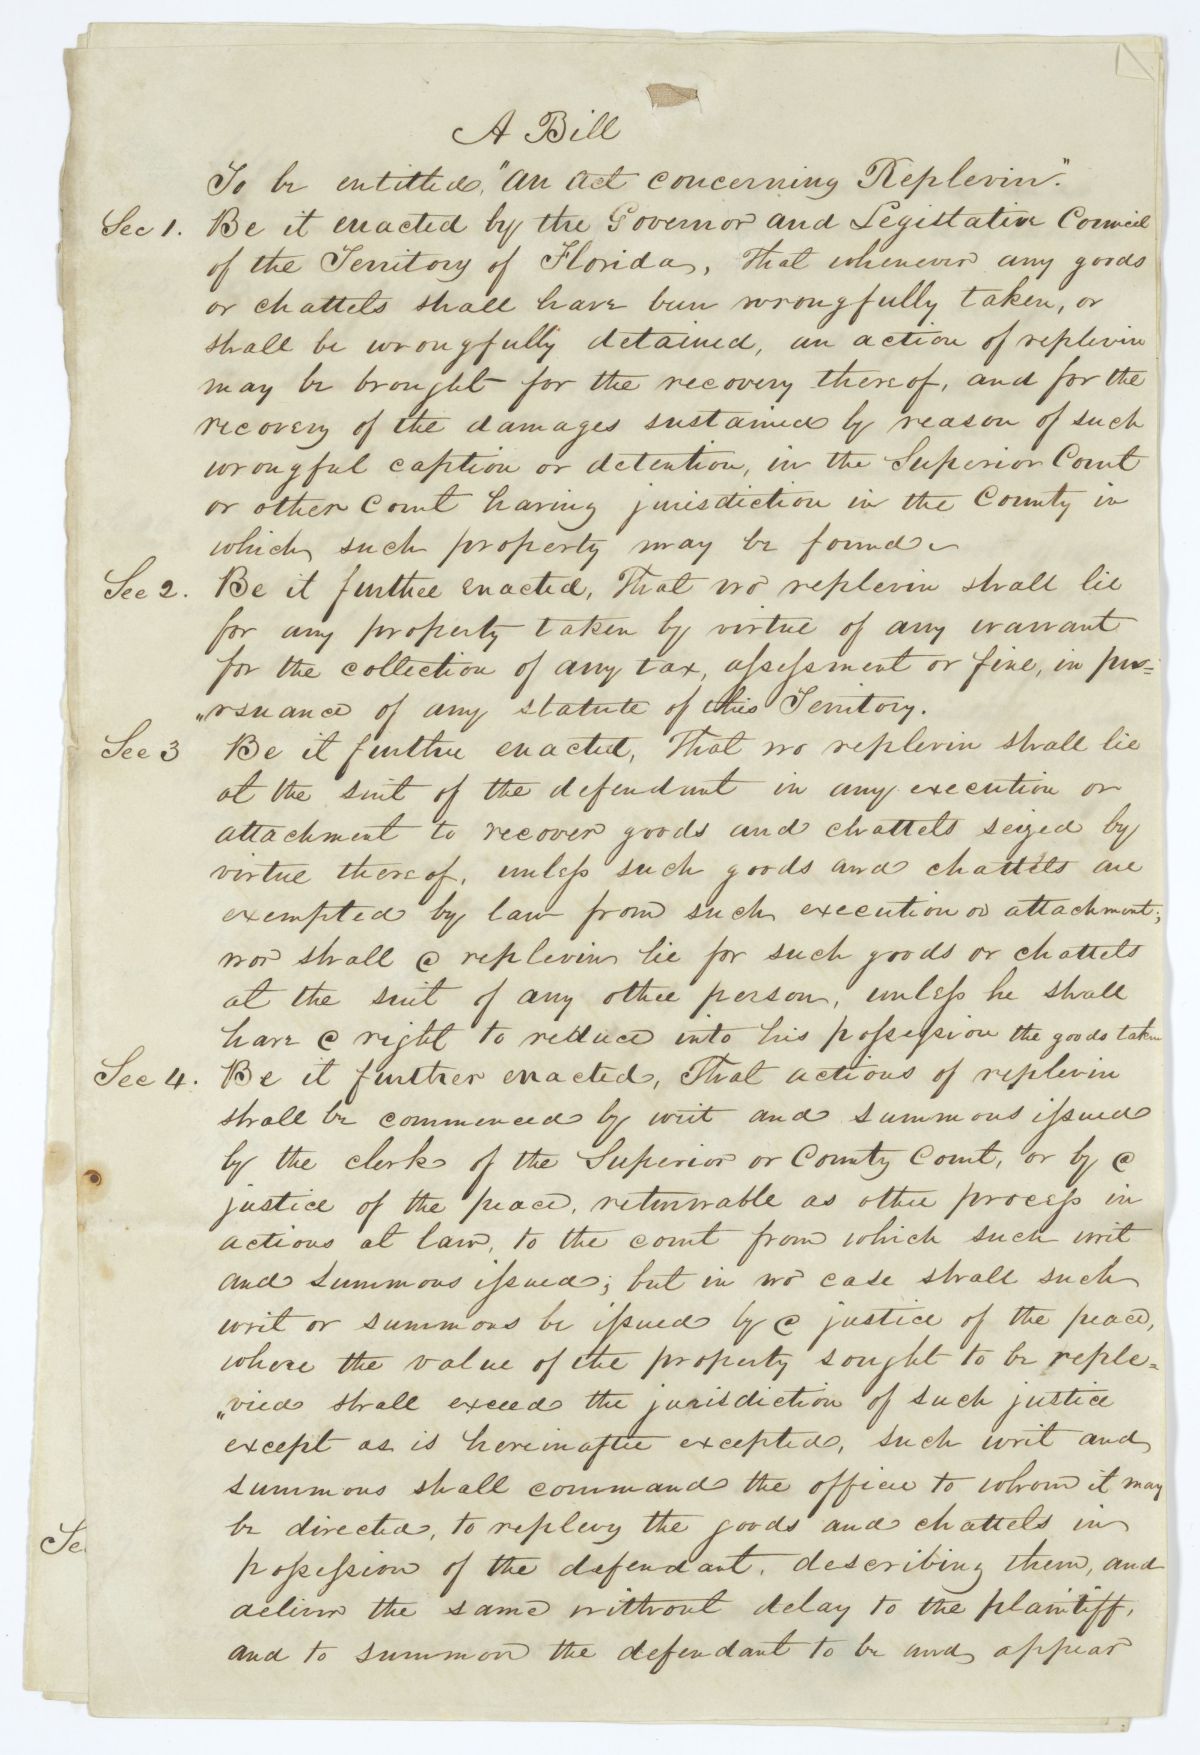 A Bill
To be entitled, "An Act concerning Replevin".
Sec 1. Be it enacted by the Governor and Legislative Council
of the Territory of Florida, That whenever any goods
or chattels shall have been wrongfully taken, or
shall be wrongfully detained, an action of replevin
may be brought for the recovery thereof, and for the
recovery of the damages sustained by reason of such
wrongful caption or detention, in the Superior Court
or other Court having jurisdiction in the County in
which such property may be found.
Sec 2. Be it further enacted, That no replevin shall lie
for any property taken by virtue of any warrant
for the collection of any tax, assessment or fine, in pur=
"rsuance of any statute of this Territory.
Sec 3 Be it further enacted, That no replevin shall lie
at the suit of the defendant in any execution or
attachment to recover goods and chattels seized by
virtue thereof, unless such goods and chattels are
exempted by law from such execution or attachment;
nor shall a replevin lie for such goods or chattels
at the suit of any other person, unless he shall
have a right to reduce into his possession the goods taken
Sec 4. Be it further enacted, That actions of replevin
shall be commenced by writ and summons issued
by the clerk of the Superior or County Court, or by a
justice of the peace, returnable as other process in
actions at law, to the court from which such writ
and summons issued; but in no case shall such
writ or summons be issued by a justice of the peace,
where the value of the property sought to be reple=
"vied shall exceed the jurisdiction of such justice
except as is hereinafter excepted, such writ and
summons shall command the officer to whom it may
be directed, to replevy the goods and chattels in
possession of the defendant, describing them, and
deliver the same without delay to the plaintiff,
and to summon the defendant to be and appear
Se